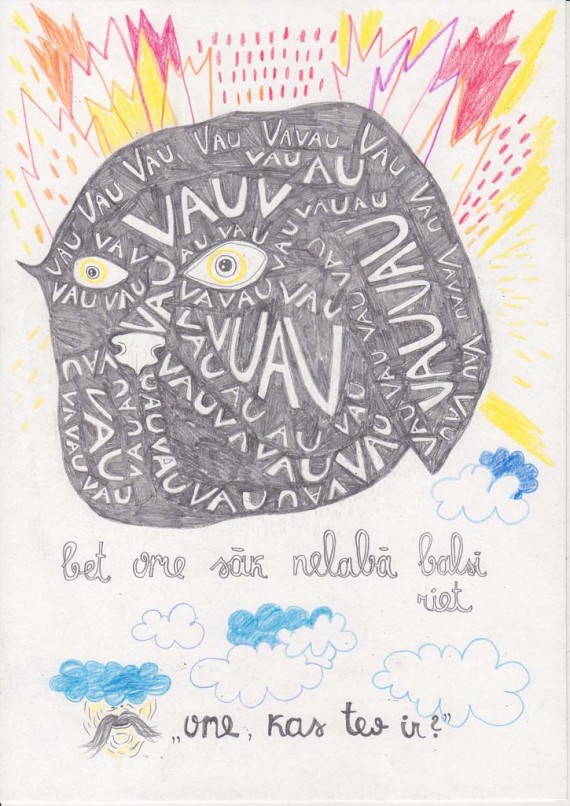 VAU VAU VAU VAU VAVAU VAU
VAU VAU
VAUV
VAUAU
VAU VAV
AU VAU
VAU VAU
VAVAU VAU
VAU
VUAU
VAUVAU
VAVAU
VAU
VAU
VAU
VAU
VAU
bet ome sāk nelabā balsī
riet
„ome, kas tev ir?”